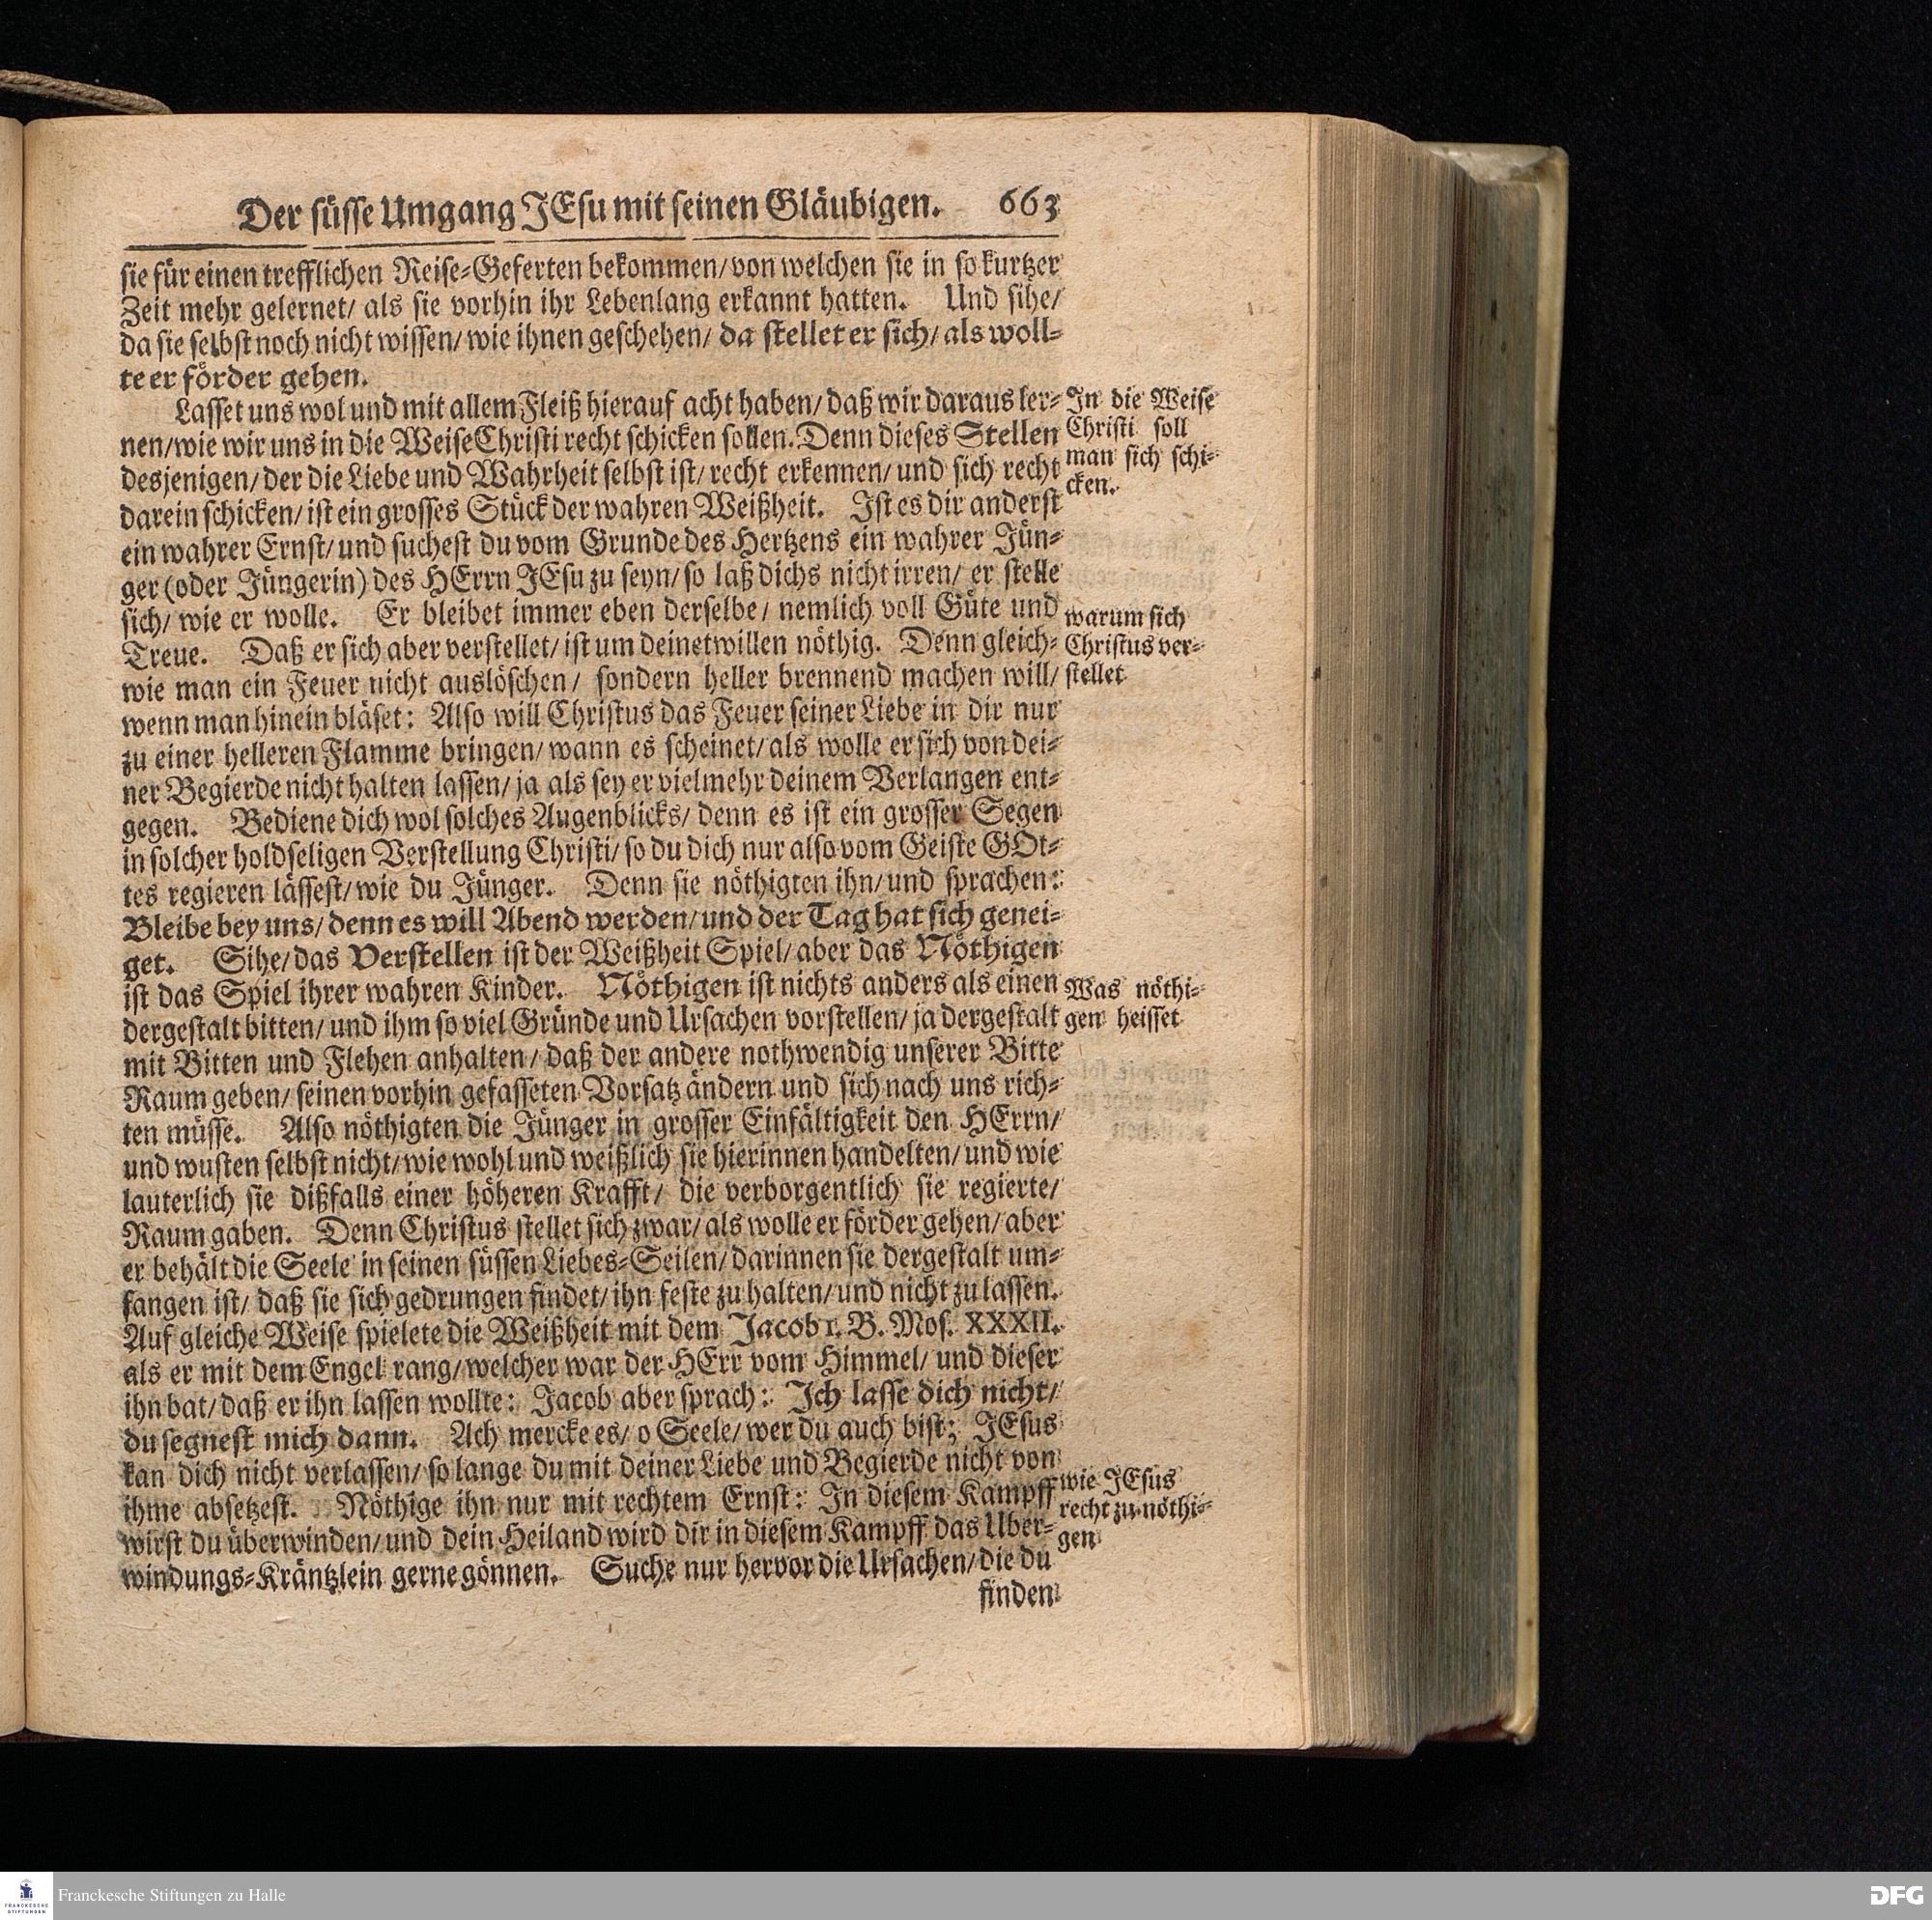 Der süsse Umgang JEsu mit seinen Gläubigen. 663
sie für einen trefflichen Reise-Geferten bekommen/ von welchen sie in so kurtzer
Zeit mehr gelernet/ als sie vorhin ihr Lebenlang erkannt hatten. Und sihe/
da sie selbst noch nicht wissen/ wie ihnen geschehen/ da stellet er sich/ als woll-
te er förder gehen.
Lasset uns wol und mit allem Fleiß hierauf acht haben/ daß wir daraus ler-
nen/ wie wir uns in die Weise Christi recht schicken sollen. Denn dieses Stellen
desjenigen/ der die Liebe und Wahrheit selbst ist/ recht erkennen/ und sich recht
darein schicken/ ist ein grosses Stück der wahren Weißheit. Ist es dir anderst
ein wahrer Ernst/ und suchest du vom Grunde des Hertzens ein wahrer Jün-
ger (oder Jüngerin) des HErrn JEsu zu seyn/ so laß dichs nicht irren/ er stelle
sich/ wie er wolle. Er bleibet immer eben derselbe/ nemlich voll Güte und
Treue. Daß er sich aber verstellet/ ist um deinetwillen nöthig. Denn gleich-
wie man ein Feuer nicht auslöschen/ sondern heller brennend machen will/
wenn man hinein bläset: Also will Christus das Feuer seiner Liebe in dir nur
zu einer helleren Flamme bringen/ wann es scheinet/ als wolle er sich von dei-
ner Begierde nicht halten lassen/ ja als sey er vielmehr deinem Verlangen ent-
gegen. Bediene dich wol solches Augenblicks/ denn es ist ein grosser Segen
in solcher holdseligen Verstellung Christi/ so du dich nur also vom Geiste GOt-
tes regieren lässest/ wie du Jünger. Denn sie nöthigten ihn/ und sprachen:
Bleibe bey uns/ denn es will Abend werden/ und der Tag hat sich genei-
get. Sihe/ das Verstellen ist der Weißheit Spiel/ aber das Nöthigen
ist das Spiel ihrer wahren Kinder. Nöthigen ist nichts anders als einen
dergestalt bitten/ und ihm so viel Gründe und Ursachen vorstellen/ ja dergestalt
mit Bitten und Flehen anhalten/ daß der andere nothwendig unserer Bitte
Raum geben/ seinen vorhin gefasseten Vorsatz ändern und sich nach uns rich-
ten müsse. Also nöthigten die Jünger in grosser Einfältigkeit den HErrn/
und wusten selbst nicht/ wie wohl und weißlich sie hierinnen handelten/ und wie
lauterlich sie dißfalls einer höheren Krafft/ die verborgentlich sie regierte/
Raum gaben. Denn Christus stellet sich zwar/ als wolle er förder gehen/ aber
er behält die Seele in seinen süssen Liebes-Seilen/ darinnen sie dergestalt um-
fangen ist/ daß sie sich gedrungen findet/ ihn feste zu halten/ und nicht zu lassen.
Auf gleiche Weise spielete die Weißheit mit dem Jacob 1. B. Mos. XXXII.
als er mit dem Engel rang/ welcher war der HErr vom Himmel/ und dieser
ihn bat/ daß er ihn lassen wollte: Jacob aber sprach: Ich lasse dich nicht/
du segnest mich dann. Ach mercke es/ o Seele/ wer du auch bist; JEsus
kan dich nicht verlassen/ so lange du mit deiner Liebe und Begierde nicht von
ihme absetzest. Nöthige ihn nur mit rechtem Ernst: In diesem Kampff
wirst du überwinden/ und dein Heiland wird dir in diesem Kampff das Uber-
windungs-Kräntzlein gerne gönnen. Suche nur hervor die Ursachen/ die du
finden
In die Weise
Christi soll
man sich schi-
cken.
warum sich
Christus ver-
stellet
Was nöthi-
gen heisset
wie JEsus
recht zu nöthi-
gen
FRANCKESCHE
STIFTUNGEN
Franckesche Stiftungen zu Halle
DFG